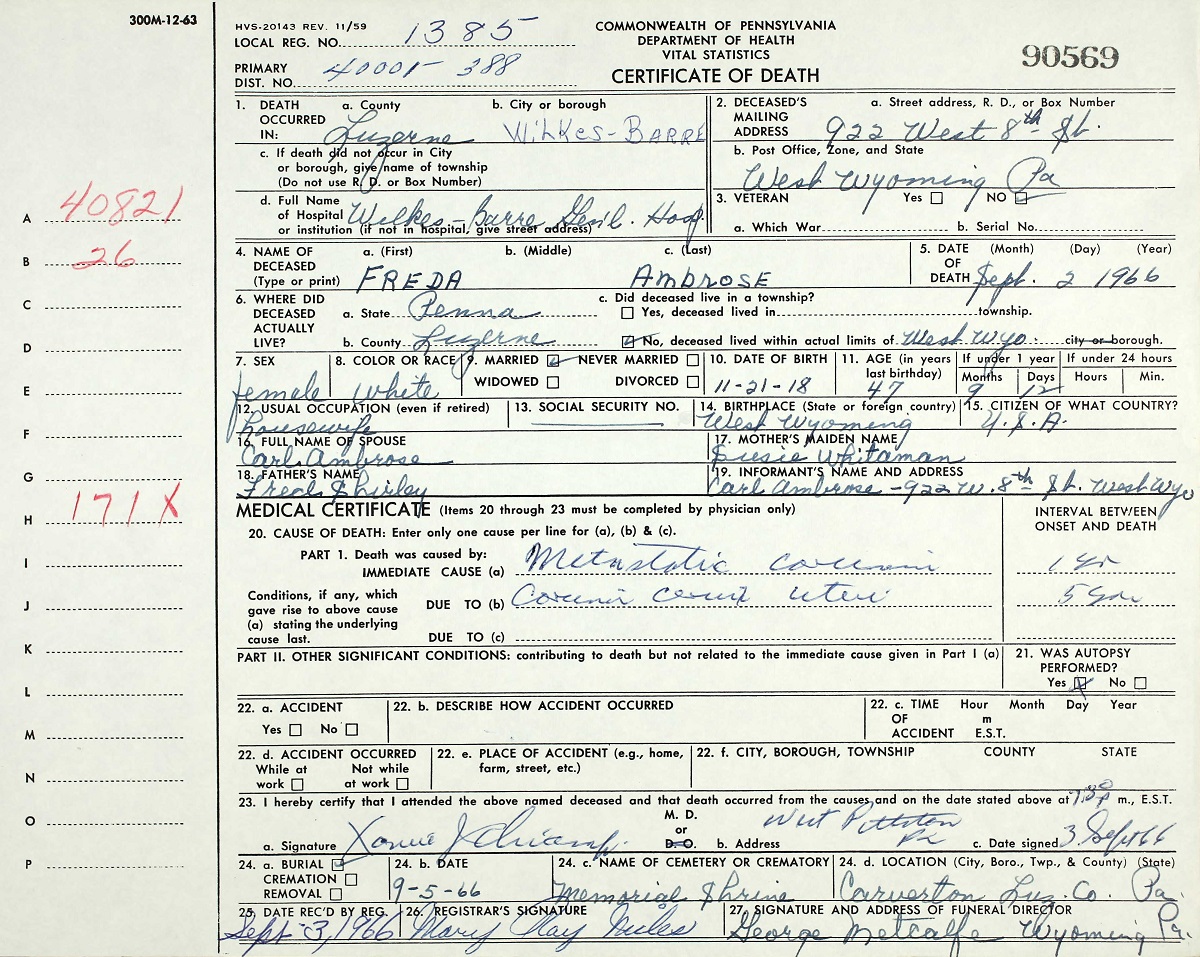 300M-12-63
HVS-20143 REV. 11/59
LOCAL REG. NO. 1385
PRIMARY DIST. NO. 388
COMMONWEALTH OF PENNSYLVANIA
DEPARTMENT OF HEALTH
VITAL STATISTICS
CERTIFICATE OF DEATH
90569
1. DEATH OCCURRED IN: a. County Luzerne b. City or borough Wilkes-Barre
c. If death did not occur in City or borough, give name of township (Do not use R. D. or Box Number)
d. Full Name of Hospital or institution (if not in hospital, give street address) Wilkes-Barre Gen'l. Hosp.
2. DECEASED'S MAILING ADDRESS a. Street address, R. D., or Box Number 922 West 8th St.
b. Post Office, Zone, and State West Wyoming Pa
3. VETERAN Yes NO
a. Which War b. Serial No.
4. NAME OF DECEASED (Type or print) a. (First) FREDA b. (Middle) c. (Last) AMBROSE
5. DATE OF DEATH (Month) (Day) (Year) Sept. 2 1966
6. WHERE DID DECEASED ACTUALLY LIVE? a. State Penna
b. County Luzerne
c. Did deceased live in a township?
Yes, deceased lived in township.
No, deceased lived within actual limits of West Wyo. city or borough.
7. SEX female
8. COLOR OR RACE white
9. MARRIED NEVER MARRIED
WIDOWED DIVORCED
10. DATE OF BIRTH 11-21-18
11. AGE (in years last birthday) 47
If under 1 year Months 9 Days 12
If under 24 hours Hours Min.
12. USUAL OCCUPATION (even if retired) housewife
13. SOCIAL SECURITY NO.
14. BIRTHPLACE (State or foreign country) West Wyoming
15. CITIZEN OF WHAT COUNTRY? U.S.A.
16. FULL NAME OF SPOUSE Carl Ambrose
17. MOTHER'S MAIDEN NAME Susie Whitaman
18. FATHER'S NAME Fred Shirley
19. INFORMANT'S NAME AND ADDRESS Carl Ambrose - 922 W. 8th St. West Wyo
MEDICAL CERTIFICATE (Items 20 through 23 must be completed by physician only)
INTERVAL BETWEEN ONSET AND DEATH
20. CAUSE OF DEATH: Enter only one cause per line for (a), (b) & (c).
PART 1. Death was caused by:
IMMEDIATE CAUSE (a) Metastatic 1 yr
Conditions, if any, which gave rise to above cause (a) stating the underlying cause last.
DUE TO (b) uteri 5 yrs
DUE TO (c)
PART II. OTHER SIGNIFICANT CONDITIONS: contributing to death but not related to the immediate cause given in Part I (a)
21. WAS AUTOPSY PERFORMED?
Yes X No
22. a. ACCIDENT
Yes No
22. b. DESCRIBE HOW ACCIDENT OCCURRED
22. c. TIME OF ACCIDENT Hour m E.S.T. Month Day Year
22. d. ACCIDENT OCCURRED
While at work Not while at work
22. e. PLACE OF ACCIDENT (e.g., home, farm, street, etc.)
22. f. CITY, BOROUGH, TOWNSHIP COUNTY STATE
23. I hereby certify that I attended the above named deceased and that death occurred from the causes and on the date stated above at 7:30 P m., E.S.T.
a. Signature M. D. or D.O.
b. Address West Pittston Pa
c. Date signed 3 Sept 66
24. a. BURIAL
CREMATION
REMOVAL
24. b. DATE 9-5-66
24. c. NAME OF CEMETERY OR CREMATORY Memorial Shrine
24. d. LOCATION (City, Boro., Twp., & County) (State) Carverton Luz. Co. Pa.
25. DATE REC'D BY REG. Sept-3, 1966
26. REGISTRAR'S SIGNATURE Mary
27. SIGNATURE AND ADDRESS OF FUNERAL DIRECTOR George Metcalfe Wyoming Pa.
A 40821
B 26
C
D
E
F
G
H 171X
I
J
K
L
M
N
O
P